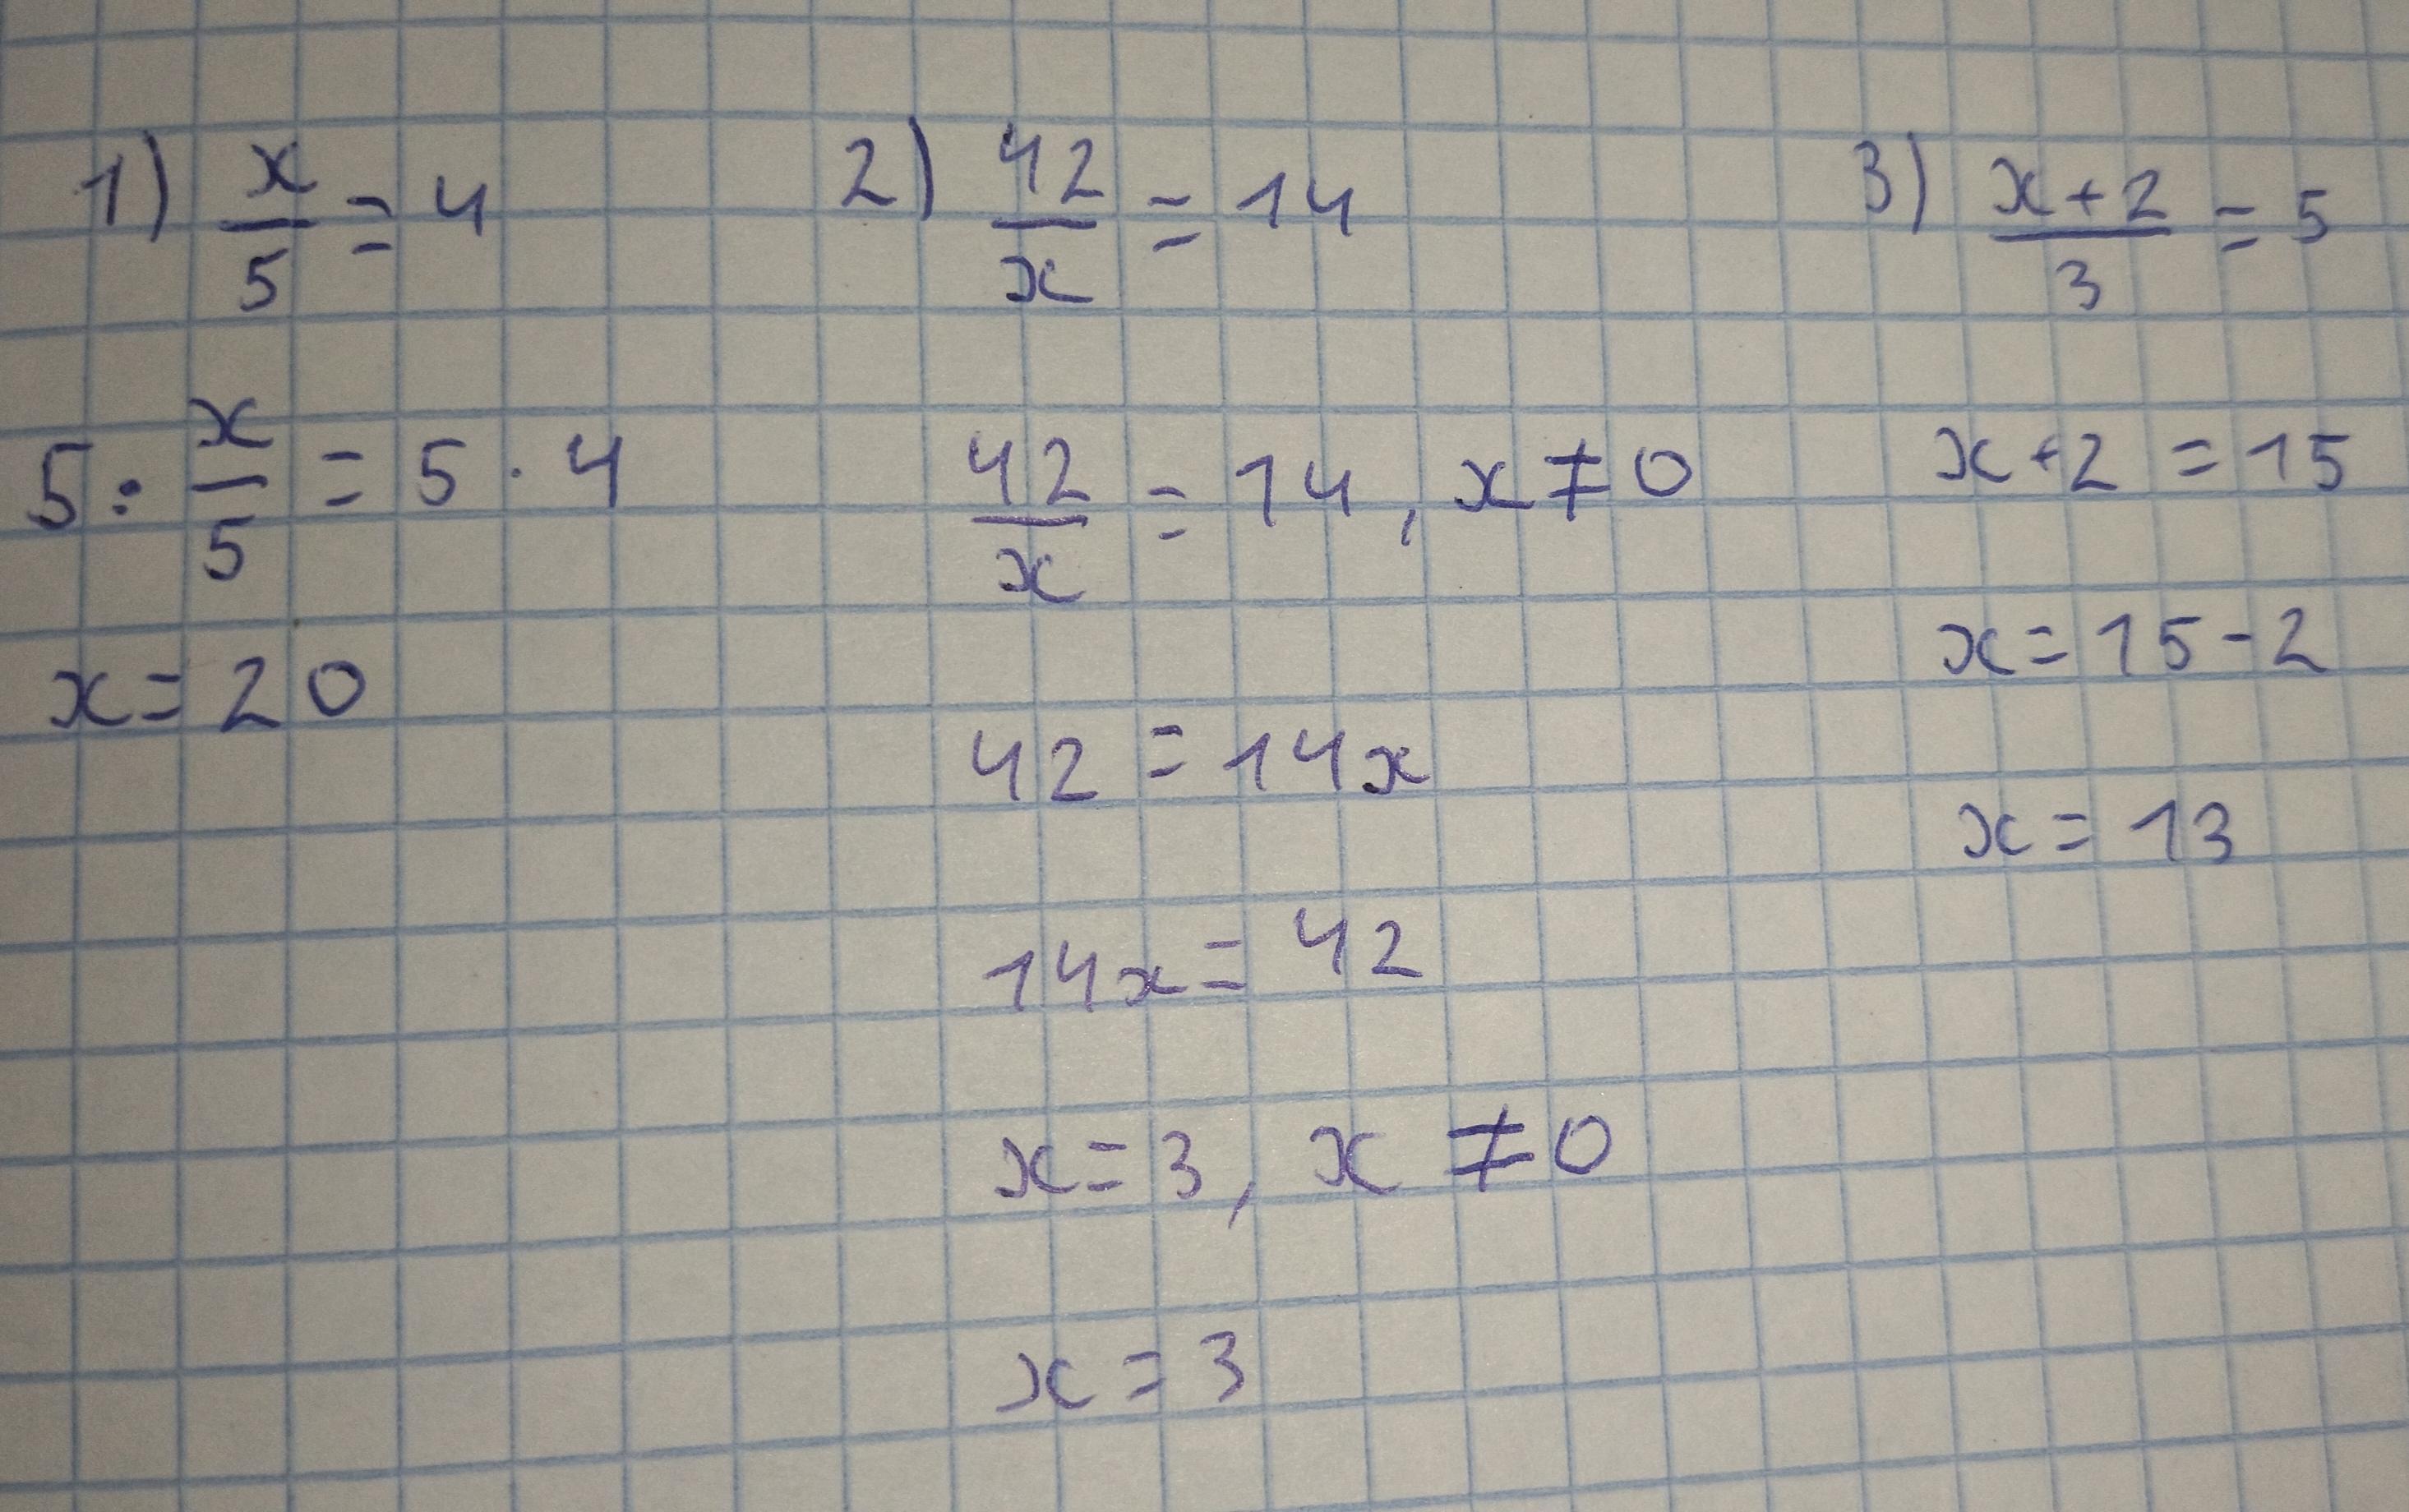 1) x/5 = 4
5 · x/5 = 5 · 4
x = 20
2) 42/x = 14
42/x = 14, x ≠ 0
42 = 14x
14x = 42
x = 3, x ≠ 0
x = 3
3) x+2/3 = 5
x+2 = 15
x = 15-2
x = 13